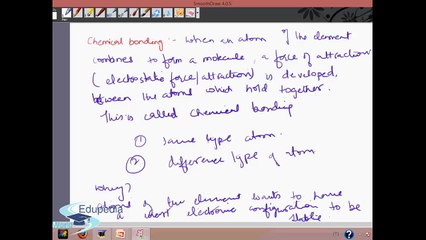 SmoothDraw 4.0.5
Chemical bonding :- When an atom of the element
combines to form a molecule, a force of attraction
(electrostatic force/attraction) is developed.
between the atoms which hold together.
This is called Chemical bonding
① same type atom.
② difference type of atom
Why?
of the element wants to have
a most electronic configuration to be
stable
Edupedia